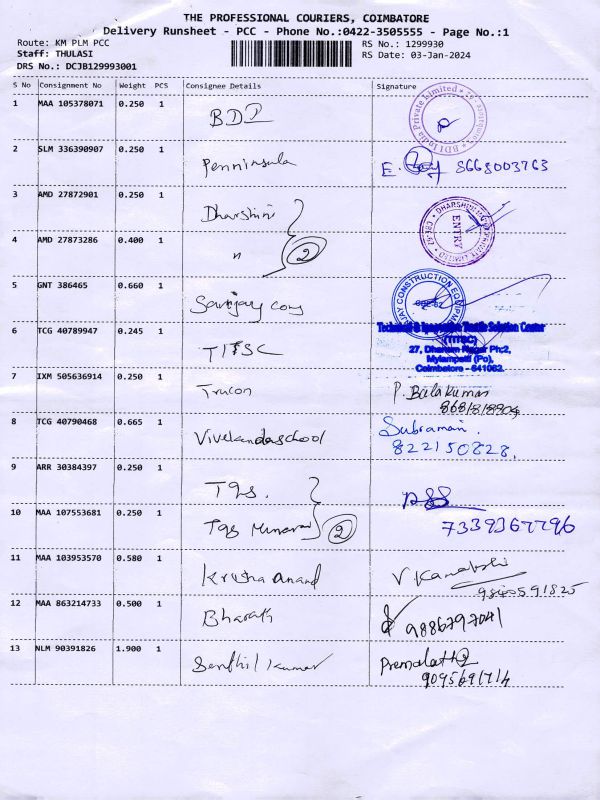 THE PROFESSIONAL COURIERS, COIMBATORE
Delivery Runsheet - PCC - Phone No.:0422-3505555 - Page No.:1
Route: KM PLM PCC RS No.: 1299930
Staff: THULASI RS Date: 03-Jan-2024
DRS No.: DCJB129993001
S No Consignment No Weight PCS Consignee Details Signature
1 MAA 105378071 0.250 1 BDI
BDI India Private Limited
2 SLM 336390907 0.250 1 Penninsula E. 8668003763
3 AMD 27872901 0.250 1 Dharshini
ENTRY
4 AMD 27873286 0.400 1 " 2
5 GNT 386465 0.660 1
CONSTRUCTION
6 TCG 40789947 0.245 1 TITSC
Textile Solution Center
(TITSC)
27, Dharani Nagar Ph:2,
Mylampatti (Po),
Coimbatore - 641062.
7 IXM 505636914 0.250 1 Trucon P. Balakumar
8 TCG 40790468 0.665 1 Subramani.
822150828.
9 ARR 30384397 0.250 1 Tqs.
10 MAA 107553681 0.250 1 Tqs 2 7339367796
11 MAA 103953570 0.580 1 Krisha anand
9840591825
12 MAA 863214733 0.500 1 Bharath 9886797041
13 NLM 90391826 1.900 1 Senthil kumar Premalatha